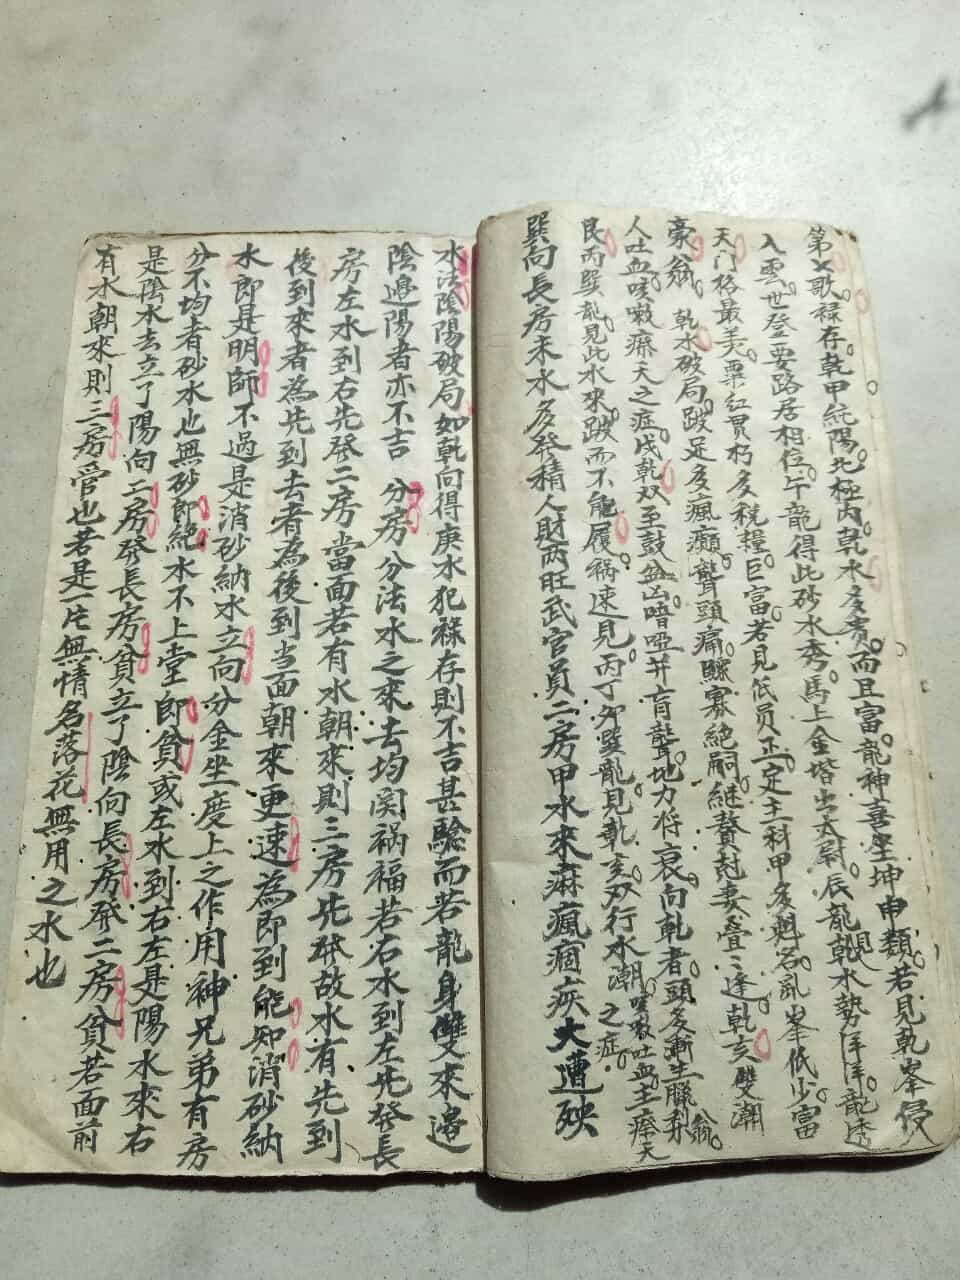 第七歌禄存乾甲純陽北極丙乾水多貴而且富龍神喜坐坤申類若見乾峯侵
入雲世登要路居相位午龍得此砂水秀馬上金堦出太尉辰龍見乾水勢洋洋龍透
天門格最美粟紅貫朽多税糧巨富若見低员正定主科甲多魁名乱峯低少富
豪翁乾水破局跛足多瘋癲聾頭痛鰥寡絶嗣継贅尅妻疊疊逢乾亥雙潮
人吐血咳嗽瘵夭之症戌乾双至鼓盆凶喑啞并盲聾地力将衰向乾者頭多漸生臘梨翁
艮丙巽龍見此水來跛而不能履禍速見丙丁卯巽龍見乾亥双行水潮咳嗽吐血主瘵夭之症
巽向長房未水多發積人財两旺武官員二房甲水來麻瘋痼疾大遭殃
水法陰陽破局如乾向得庚水犯禄存則不吉甚驗而若龍身雙來邉
陰邉陽者亦不吉 分房 分法水之來去均関禍福若右水到左先發長
房左水到右先發二房當面若有水朝來則三房先發故水有先到
後到來者為先到去者為後到当面朝來更速為即到能知消砂納
水即是明師不過是消砂納水立向分金坐度上之作用神兄弟有房
分不均者砂水也無砂即絶水不上堂即貧或左水到右左是陽水來右
是陰水去立了陽向二房發長房貧立了陰向長房發二房貧若面前
有水朝來則三房管也若是一片無情名落花無用之水也